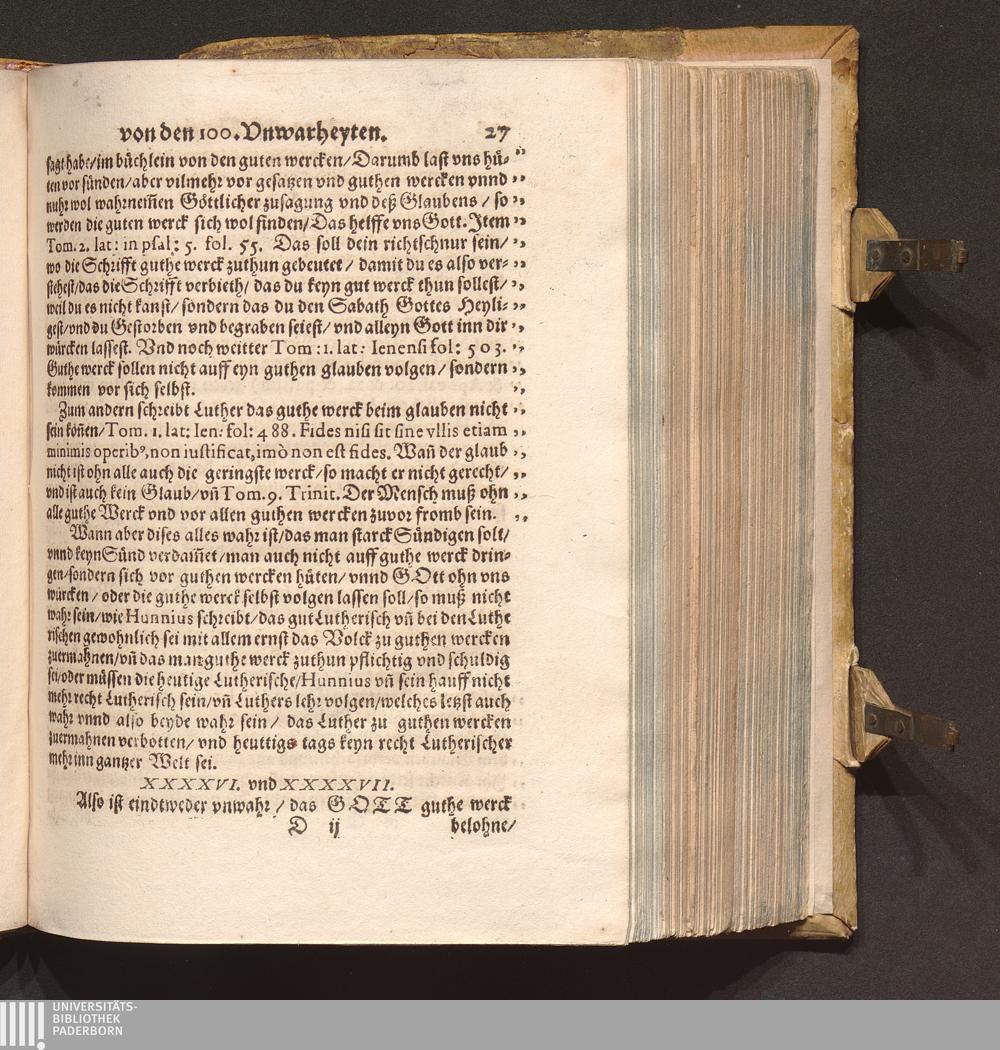 von den 100. Vnwarheyten. 27
sagt habe/im büchlein von den guten wercken/Darumb last vns hü- ”
ten vor sünden/aber vilmehr vor gesatzen vnd guthen wercken vnnd ”
nuhr wol wahrnem̃en Göttlicher zusagung vnd deß Glaubens / so ”
werden die guten werck sich wol finden/Das helffe vns Gott. Item ”
Tom. 2. lat: in psal: 5. fol. 55. Das soll dein richtschnur sein/ ”
wo die Schrifft guthe werck zuthun gebeutet / damit du es also ver- ”
stehest/das die Schrifft verbieth/ das du keyn gut werck thun sollest/ ”
weil du es nicht kanst/ sondern das du den Sabath Gottes Heyli- ”
gest/vnd du Gestorben vnd begraben seiest/ vnd alleyn Gott inn dir ”
würcken lassest. Vnd noch weitter Tom :1. lat: Ienensi fol: 503. ”
Guthe werck sollen nicht auff eyn guthen glauben volgen/ sondern ”
kommen vor sich selbst. ”
Zum andern schreibt Luther das guthe werck beim glauben nicht ”
sein köñen/Tom. 1. lat: Ien: fol: 488. Fides nisi sit sine vllis etiam ”
minimis operibꝰ, non iustificat, imò non est fides. Wañ der glaub ”
nicht ist ohn alle auch die geringste werck/so macht er nicht gerecht/ ”
vnd ist auch kein Glaub/vñ Tom. 9. Trinit. Der Mensch muß ohn ”
alle guthe Werck vnd vor allen guthen wercken zuvor fromb sein. ”
Wann aber dises alles wahr ist/das man starck Sündigen solt/
vnnd keyn Sünd verdam̃et/man auch nicht auff guthe werck drin-
gen/sondern sich vor guthen wercken hüten/ vnnd GOtt ohn vns
würcken / oder die guthe werck selbst volgen lassen soll/so muß nicht
wahr sein/wie Hunnius schreibt/das gut Lutherisch vñ bei den Luthe
rischen gewohnlich sei mit allem ernst das Volck zu guthen wercken
zuermahnen/vñ das man guthe werck zuthun pflichtig vnd schuldig
sei/oder müssen die heutige Lutherische/Hunnius vñ sein hauff nicht
mehr recht Lutherisch sein/vñ Luthers lehr volgen/welches letzst auch
wahr vnnd also beyde wahr sein / das Luther zu guthen wercken
zuermahnen verbotten/ vnd heuttigs tags keyn recht Lutherischer
mehr inn gantzer Welt sei.
XXXXVI. vnd XXXXVII.
Also ist eindtweder vnwahr / das GOTT guthe werck
D ij belohne/
UNIVERSITÄTS-
BIBLIOTHEK
PADERBORN